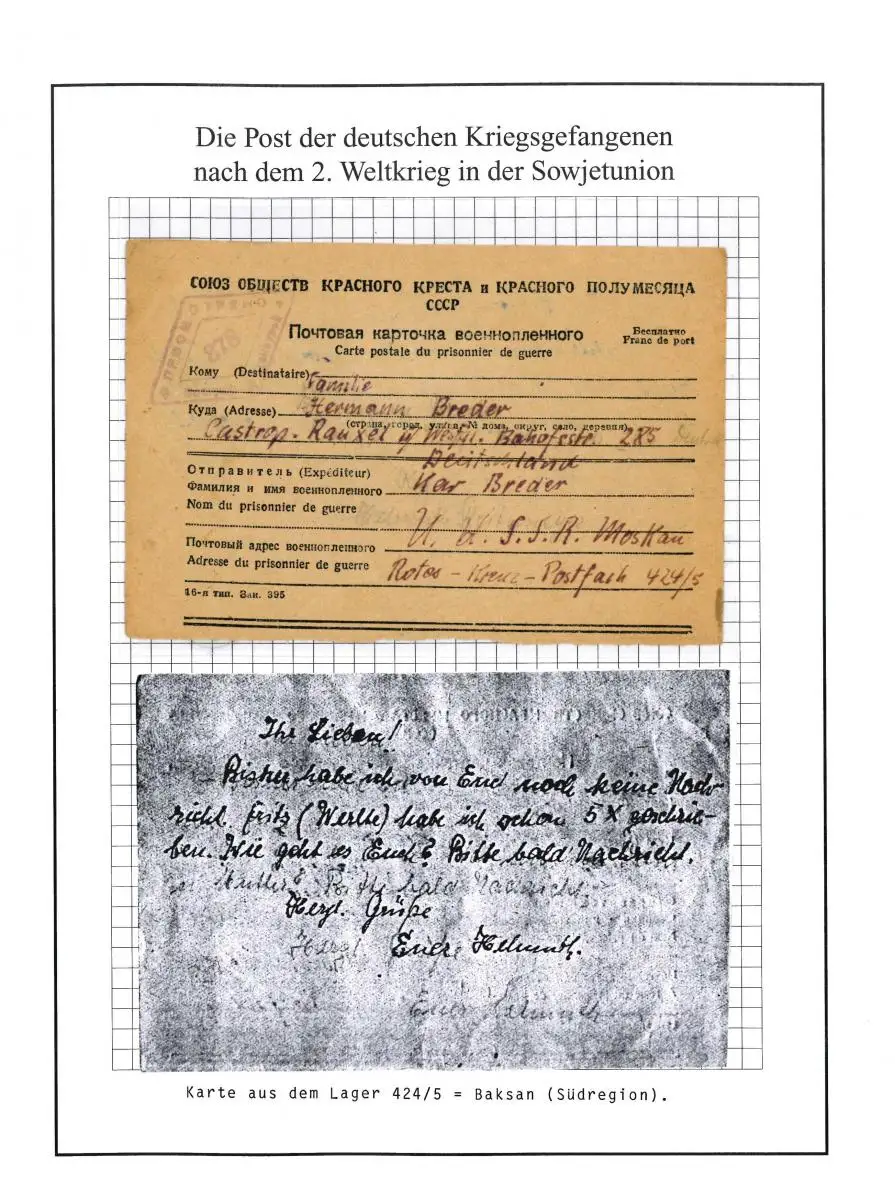 Die Post der deutschen Kriegsgefangenen
nach dem 2. Weltkrieg in der Sowjetunion
СОЮЗ ОБЩЕСТВ КРАСНОГО КРЕСТА и КРАСНОГО ПОЛУМЕСЯЦА
СССР
Почтовая карточка военнопленного
Бесплатно
Carte postale du prisonnier de guerre
Franc de port
878
Кому (Destinataire)
Familie
Куда (Adresse) Hermann Breder
(страна, город, улица, № дома, округ, село, деревня)
Castrop-Rauxel Westf. Bahnhofstr. 285
Deutschland
Отправитель (Expéditeur)
Фамилия и имя военнопленного Kar Breder
Nom du prisonnier de guerre
U. d. S. S. R. Moskau
Почтовый адрес военнопленного
Adresse du prisonnier de guerre Rotes-Kreuz-Postfach 424/5
16-я тип. Зак. 395
Ihr Lieben!
Bisher habe ich von Euch noch keine Nach-
richt. Fritz (Werthe) habe ich schon 5 X geschrie-
ben. Wie geht es Euch? Bitte bald Nachricht.
Bitte bald Nachricht
Herzl. Grüße
Herzl
Euer Helmuth.
Euer Helmuth
Karte aus dem Lager 424/5 = Baksan (Südregion).